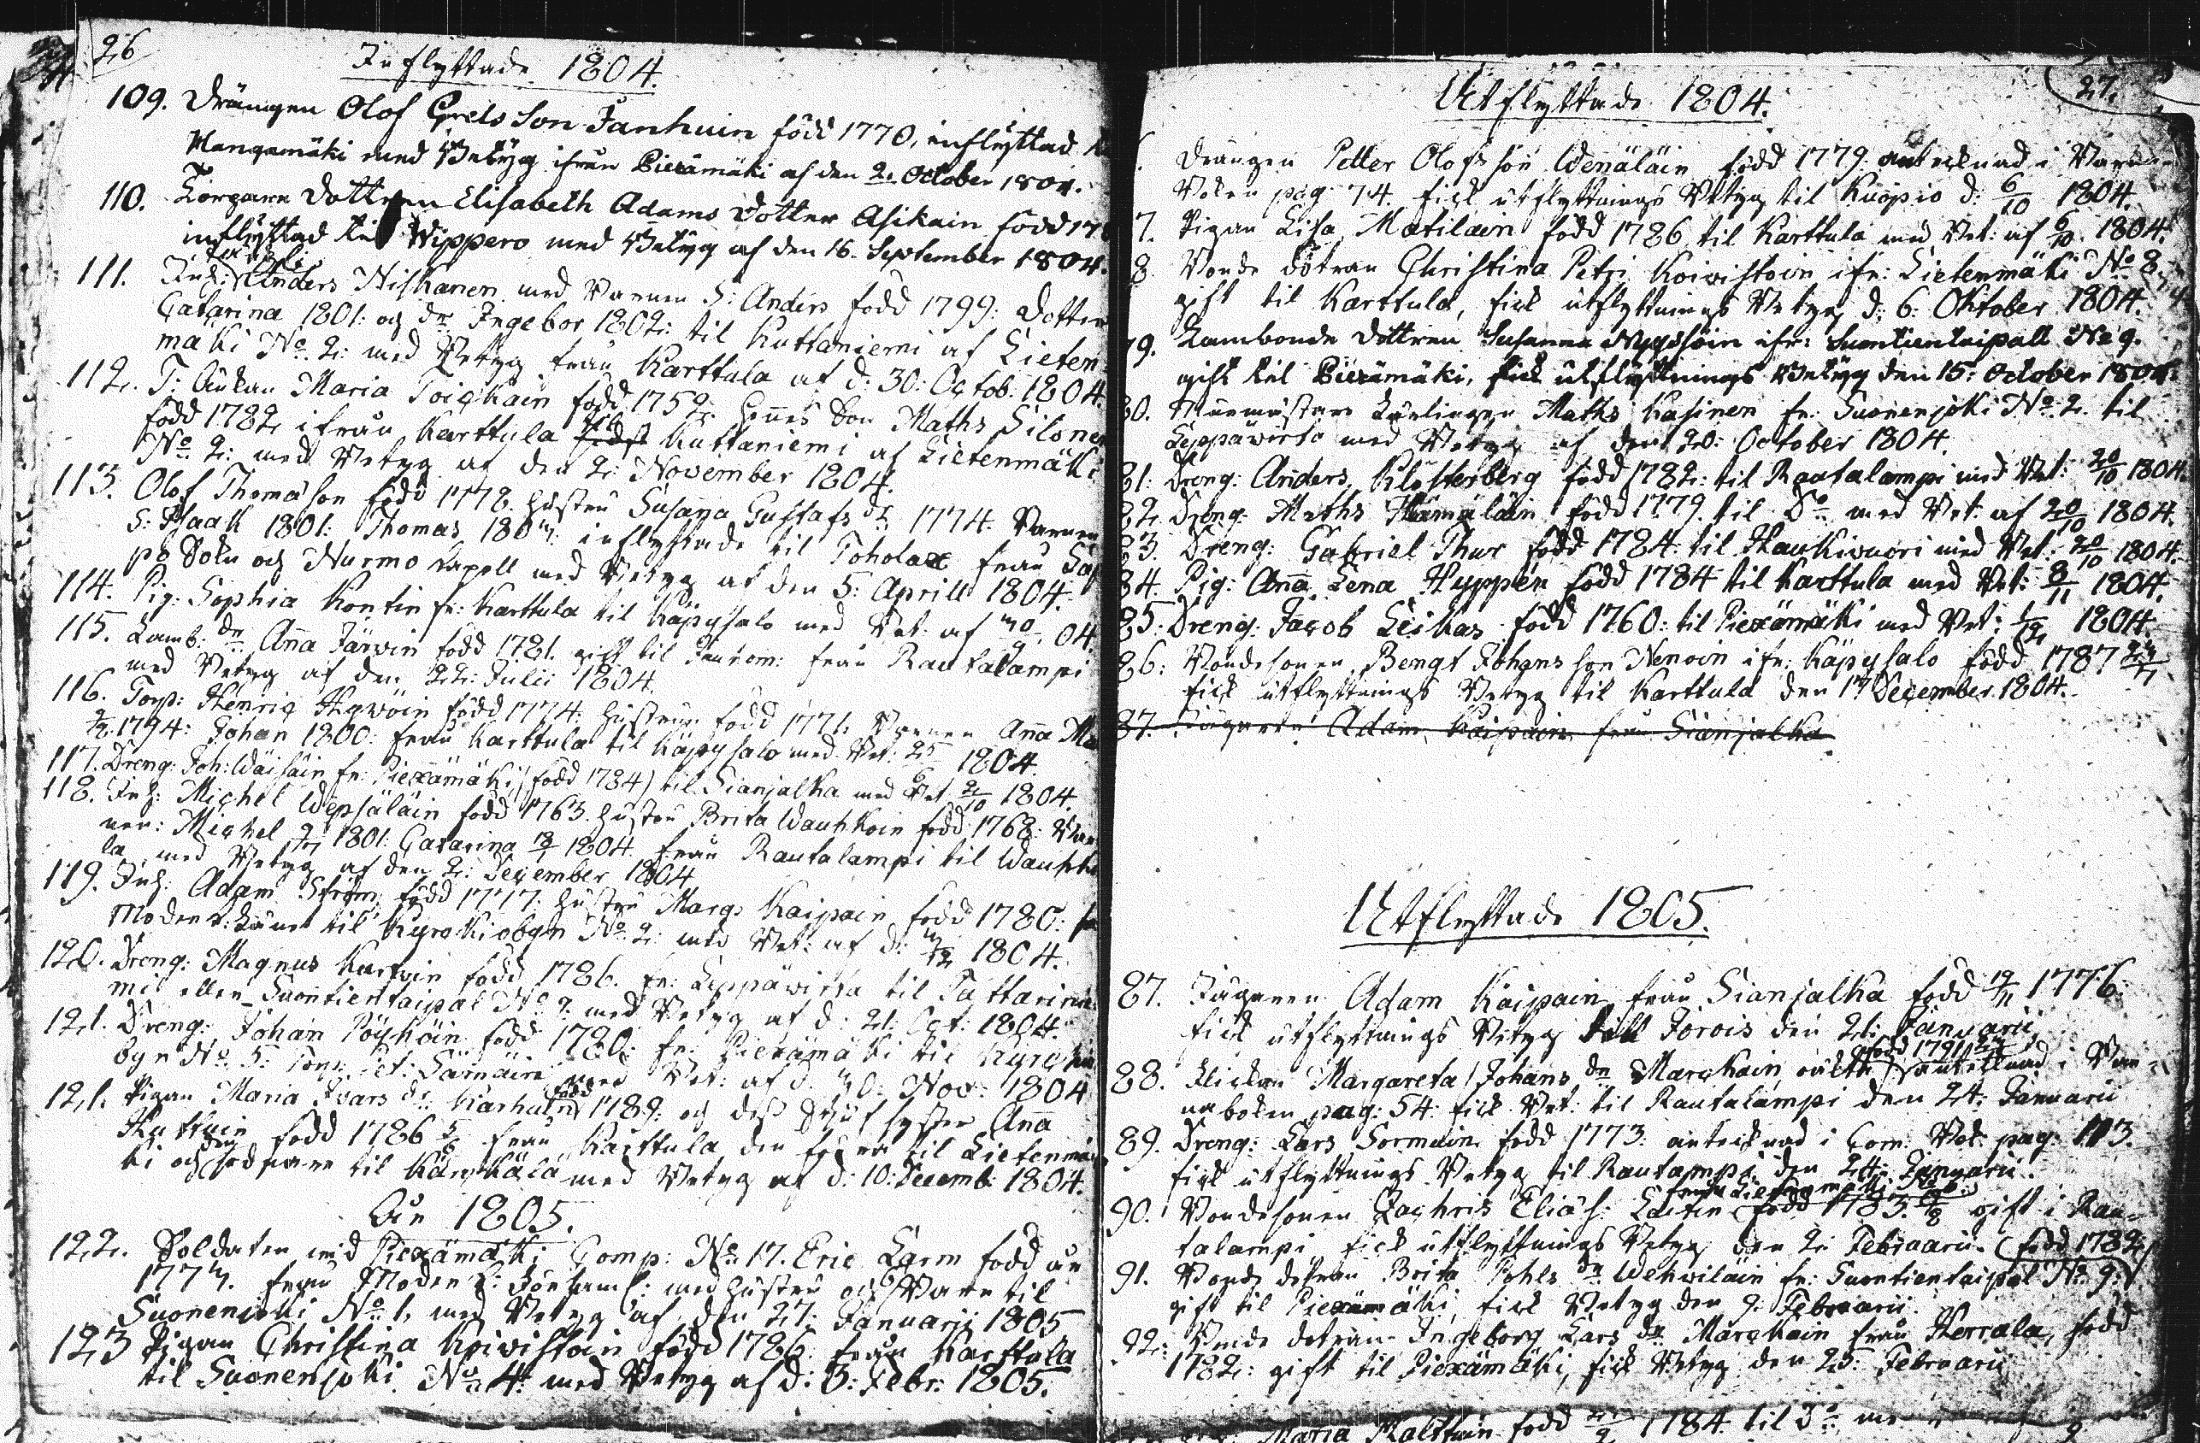 26
Inflyttade 1804.
109. Drängen Olof Grels Son Janhuin född 1770, inflyttad
Mangamäki med Betyg ifrån Piexämäki af den 2. October 1804.
110. Torpare Dottren Elisabeth Adams Dotter Asikain född
inflyttad til Wippero med Betyg af den 16. September 1804.
111. Inh: Anders Niskanen med Barnen S: Anders född 1799: Dotter
Catarina 1801: och dr Ingebor 1802: til Kuttaniemi af Lieten
mäki No 2: med Betyg från Karttula af d: 30: Octob. 1804.
112. Enkan Maria Toickain född 1752: Hennes Son Maths Silonen
född 1782 ifrån Karttula til Kuttaniemi af Lietenmäki
No 2: med Betyg af den 2: November 1804.
113. Olof Thomason född 1778. hustru Susana Gustafs dr 1774. Barnen
S: Isaak 1801: Thomas inflyttade til Toholax från
Sokn och Nurmo Kapell med Betyg af den 5: Aprill 1804.
114. Pig: Sophia Kontin fr: Karttula til Käpysalo med Bet: af 04.
115. Lamb: dr Anna Järvin född 1781. gift til från Rautalampi
med Betyg af den 22: Julii 1804.
116. Torp: Henric Hywöin född 1774: hustrun född 1771: Barnen Anna
1794: Johan 1800: från Karttula til Käpysalo med Bet: 1804.
117. Dreng: Joh: Wäisäin fr: Piexämäki (född 1784) til Sianjalka med Bet 2/10 1804.
118. Inh: Michel Wepsäläin född 1763. hustru Brita Wauhkoin född 1768: Bar
nen: Michel 1801: Catarina 1804 från Rautalampi til Wauhko
la med Betyg af den 2: December 1804
119. Inh: Adam Ström född 1777: hustru Marg: Kaipain född 1780:
Moders: Länet til Kyrckiobyn No 2: med Bet: af d: 1804.
120. Dreng: Magnus Kurvin född 1786. fr: Leppäwirta til Tattarinie
mi eller Suontientaipal No 7: med Betyg af d: 21: Oct: 1804.
121. Dreng: Johan Pöyhöin född 1780: fr: Piexämäki til Kyrckio
byn No 5: Torp: Pet: Särnäin med Bet: af d: 30: Nov: 1804
121. Pigan Maria Ivars dr Karhuin född 1789: och des Styf syster Anna
född 1786 från Karttula den förra til Lietenmä
ki och den sednare til Kärckälä med Betyg af d: 10: Decemb: 1804.
År 1805.
122. Soldaten vid Piexämäki Comp: No 17. Eric Larm född år
1777. från med hustru och Barn til
Suonenjoki No 1, med Betyg af den 27: Januarii 1805
123 Pigan Christina Koivistoin född 1786: från Karttula
til Suonenjoki No 4: med Betyg af d: 3: Febr: 1805.
27.
Utflyttade 1804.
Drängen Petter Olofsson Wenäläin född 1779 antecknad i Barna
Boken pag: 74. fick utflyttnings Betyg til Kuopio d: 6/10 1804.
7. Pigan Lisa Matilain född 1786 til Karttula med Bet: af 6/10 1804.
8. Bonde dotran Christina Petri Koivistoin ifr: Lietenmäki No 8
gift til Karttula, fick utflyttnings Betyg d: 6: Oktober 1804.
79. Lambonde Dottren Susanna Nyyssöin ifr: Suontientaipall No 9.
gift til Piexämäki, fick utflyttnings Betyg den 15: October 1804.
80. Murmästare Lärlingen Maths Kasinen fr: Suonenjoki No 2. til
Leppäwirta med Betyg af den 20: October 1804.
81: Dreng: Anders Klösterberg född 1782: til Rautalampi med Bet: 20/10 1804.
82. Dreng: Maths Hämäläin född 1779. til Do med Bet: af 20/10 1804.
83. Dreng: Gabriel Thur född 1784: til Haukiwuori med Bet: 20/10 1804.
84. Pig: Anna Lena Hyppén född 1784 til Karttula med Bet: 8/11 1804.
85: Dreng: Jacob Leskas född 1760: til Piexämäki med Bet: 1/12 1804.
86: Bondesonen Bengt Johansson Nenoin ifr: Käpysalo född 1787
fick utflyttnings Betyg til Karttula den 17 December 1804.
87. Jägaren Adam Kaipain från Sianjalka
Utflyttade 1805.
87. Jägaren Adam Kaipain från Sianjalka född 19/11 1776:
fick utflyttnings Betyg till Jorois den 21: Januarii
88. Flickan Margareta Johans dr Marckain född 1791 antecknad i Bar
naboken pag: 54: fick Bet: til Rautalampi den 24: Januarii
89. Dreng: Lars Sormuin född 1773: antecknad i Com: Bok: pag: 113.
fick utflyttnings Betyg til Rautampi den 24: Januarii.
90. Bondesonen Zachris Eliæs: Laitin från Lietenmäki född 1783. gift i Rau
talampi fick utflyttnings Betyg den 2: Februarii. (född 1782)
91. Bonde dotran Brita Pohls dr Wehwiläin fr: Suontientaipal No 9:
gift til Piexämäki, fick Betyg den 9: Februarii.
92: Bonde dotran Ingeborg Lars dr Marckain från Herrala, född
1782: gift til Piexämäki, fick Betyg den 25: Februarii
Maria född 1784 til Do